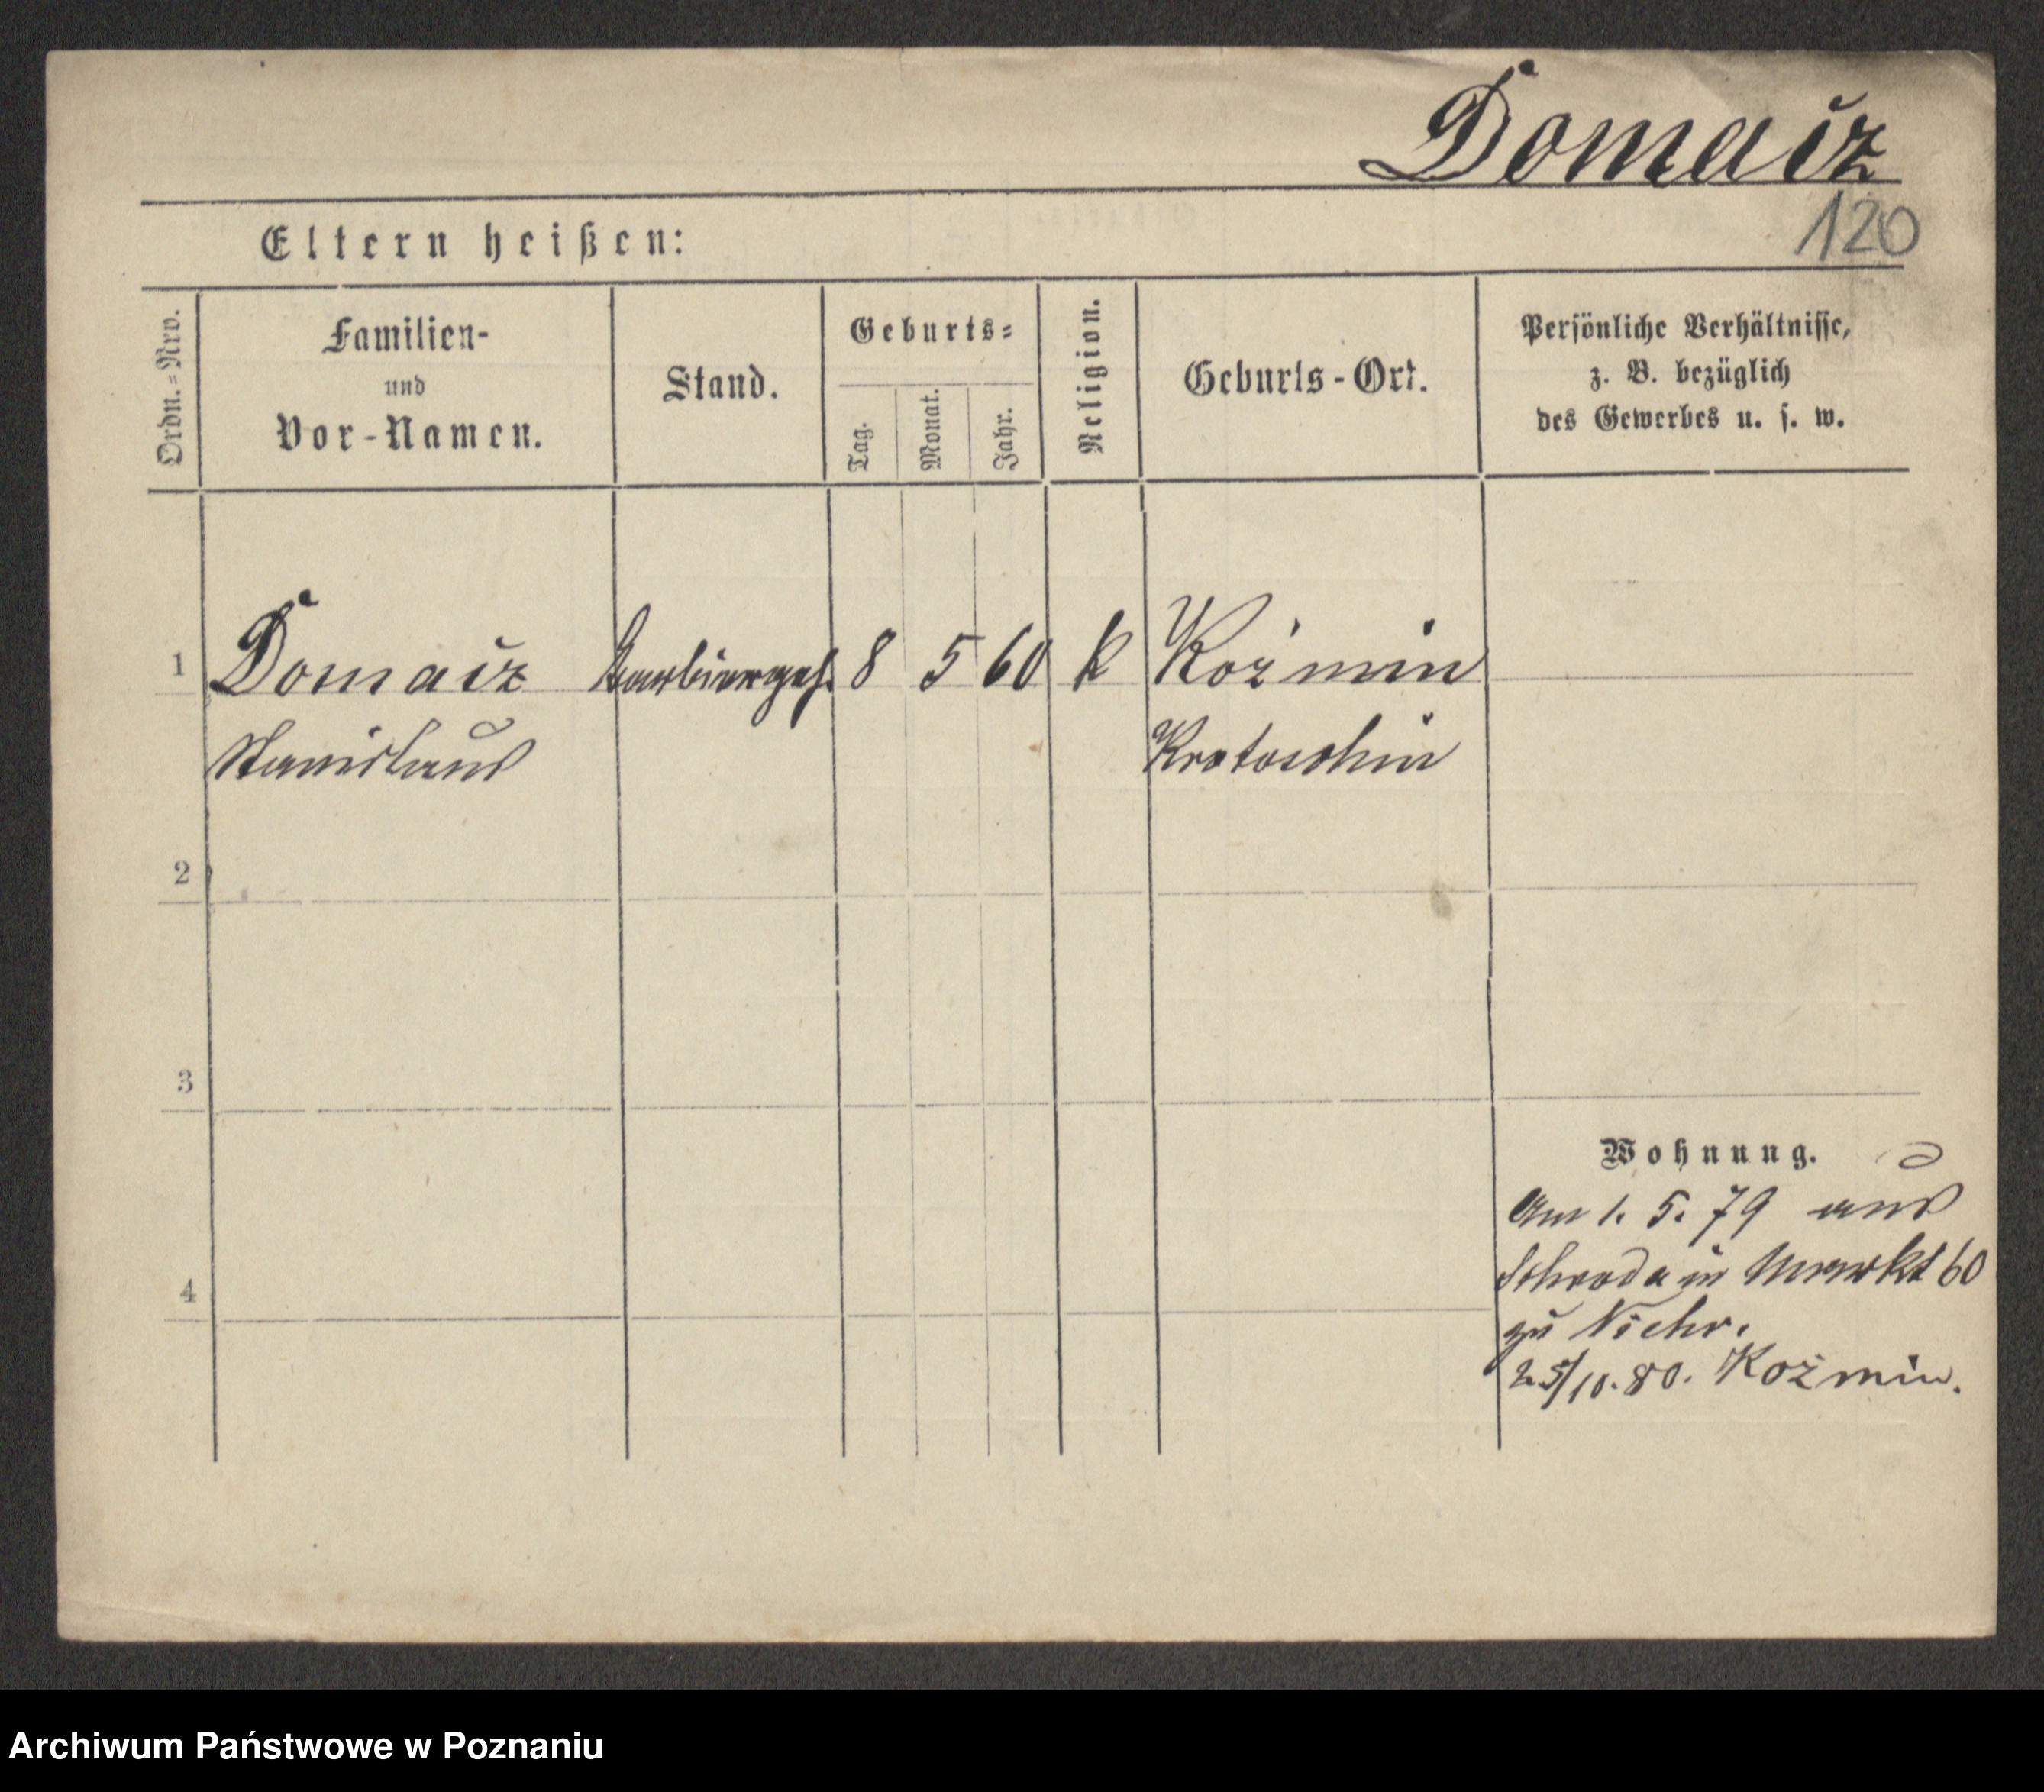 Domaiz
120
Eltern heißen:
Ordn.=Nro.
Familien-
und
Vor-Namen.
Stand.
Geburts=
Tag.
Monat.
Jahr.
Religion.
Geburts-Ort.
Persönliche Verhältnisse,
z. B. bezüglich
des Gewerbes u. s. w.
1 Domaiz Barbiergeh. 8 5 60 k Kozmin
Stanislaus Krotoschin
2
3
Wohnung.
Am 1. 5. 79 aus
Schroda in Markt 60
4
zu
25/10. 80. Kozmin.
Archiwum Państwowe w Poznaniu